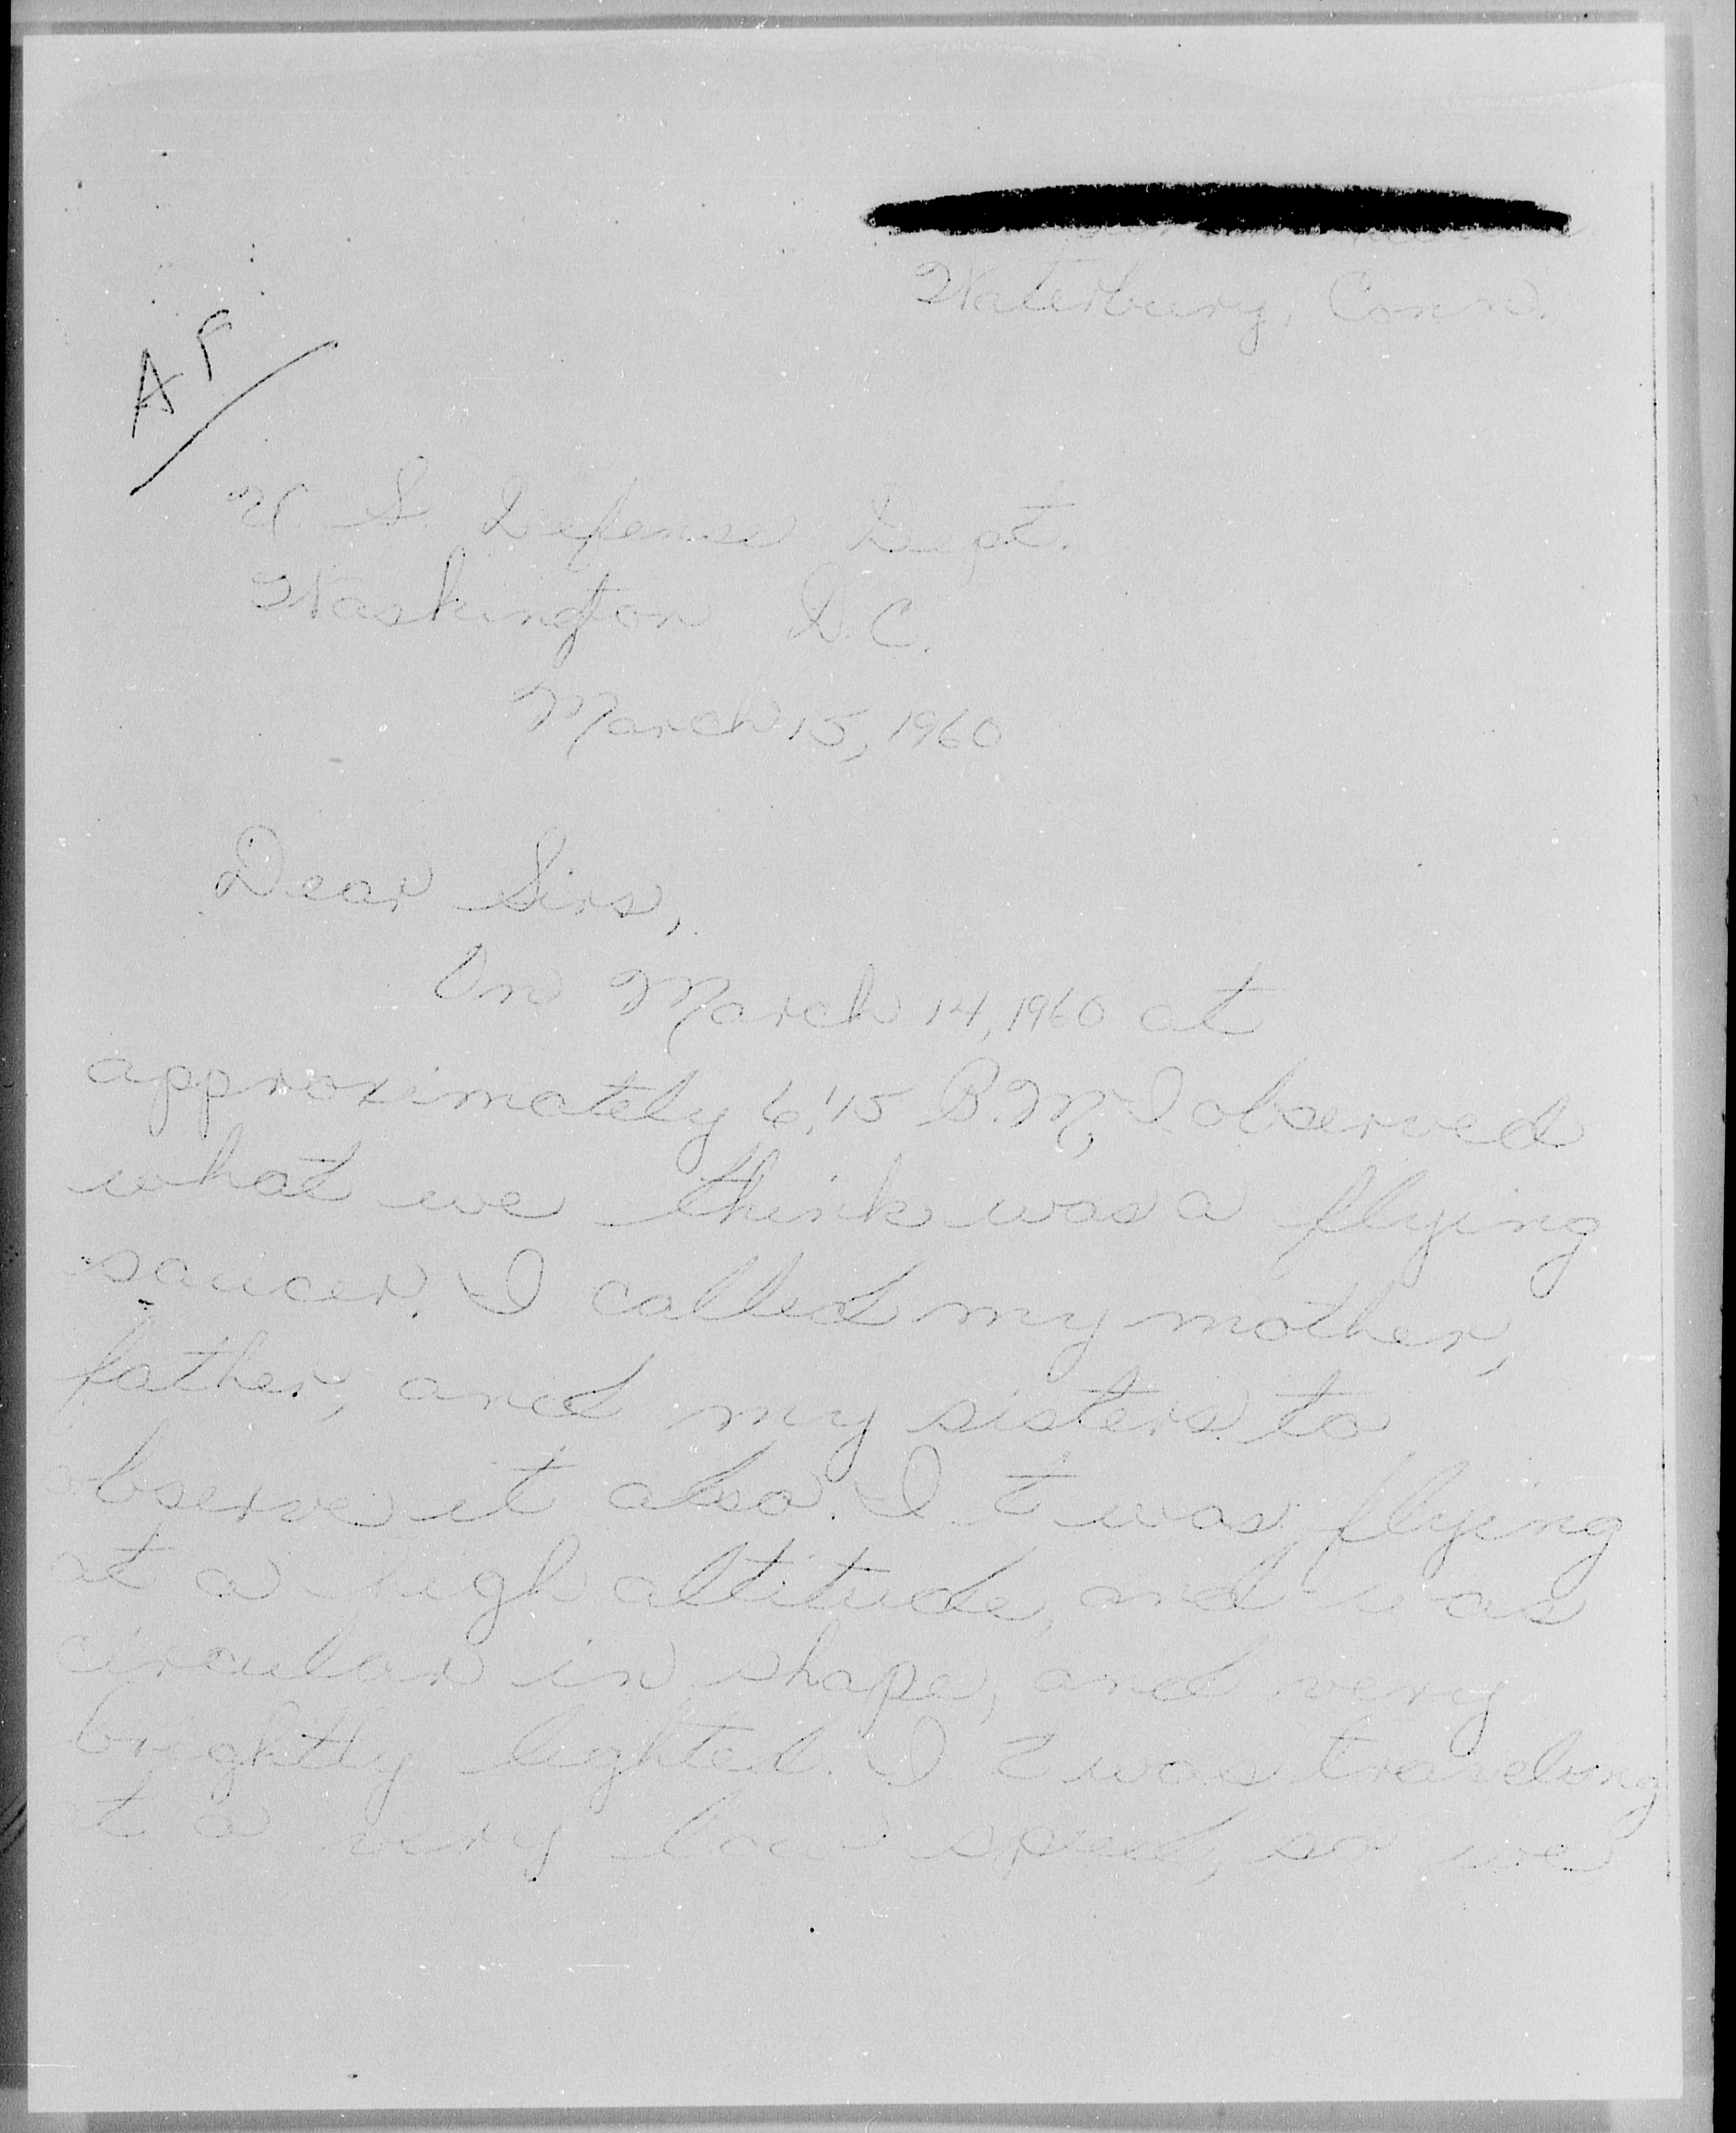 Waterbury, Conn.
AF
U S. Defense Dept.
Washington D.C.
March 15, 1960
Dear Sirs,
On March 14, 1960 at
approximately 6:15 P.M., I observed
what we think was a flying
saucer. I called my mother,
father, and my sisters to
observe it also. It was flying
at a high altitude, and was
circular in shape, and very
brightly lighted. It was traveling
at a very low speed, so we